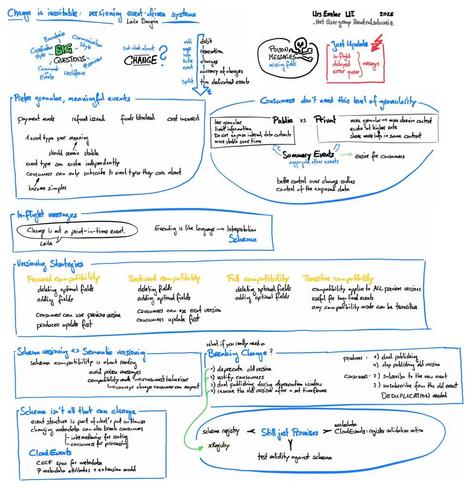 Change is inevitable: versioning event-driven systems
Laila Bougria
Urs Enzler 2026
.Net User group Zentralschweiz
Boundaries
Communication Style
Coordination Style
BIG
QUESTIONS
Coarse Events
Workflows
but what about
CHANGE?
add
split
debit
generation
changes
currency of changes
two dedicated events
POISON
MESSAGES
missing fields
Just Update
in-flight
delayed
error queue
messages
Prefer granular, meaningful events
payment made
refund issued
funds blocked
cost incurred
1 event type per meaning
should remain stable
event type can evolve independently
consumers can only subscribe to event types they care about
become simpler
Consumers don't need this level of granularity
less granular
limit information
Do not expose internal data contracts
more stable over time
Public vs Privat
more granular => more domain context
evolve at higher rate
share more info in same context
Summary Events
aggregated other events
easier for consumers
better control over change cadence
control of the exposed data
In-flight messages
Change is not a point-in-time event.
Laila
Encoding is like language -> Interpretation
Schema
Versioning Strategies
Forward compatibility
deleting optional fields
adding fields
consumers can use previous version
producers update first
Backward compatibility
deleting fields
adding optional fields
consumers can use next version
consumers update first
Full compatibility
deleting optional fields
adding optional fields
Transitive compatibility
compatibility applies to ALL previous versions
useful for long-lived events
any compatibility mode can be transitive
Schema versioning <> Semantic versioning
schema compatibility is about reading
avoid poison messages
compatibility mode communicates behaviour
conveys change consumers can expect
What if you really need a
Breaking Change?
1) deprecate old version
2) notify consumers
3) dual publishing during deprecation window
4) remove the old version after a set timeframe
producer: 1) dual publishing
4) stop publishing old version
consumer: 2) subscribe to the new event
3) unsubscribe from the old event
DEDUPLICATION needed
Schema isn't all that can change
event structure is part of what you publish
changing metadata can also break consumers
intermediaries for routing
consumers for processing
CloudEvents
CNCF spec for metadata
7 metadata attributes + extension model
schema registry
xRegistry
Still just Promises
metadata
CloudEvents: register validation action
test validity against schema